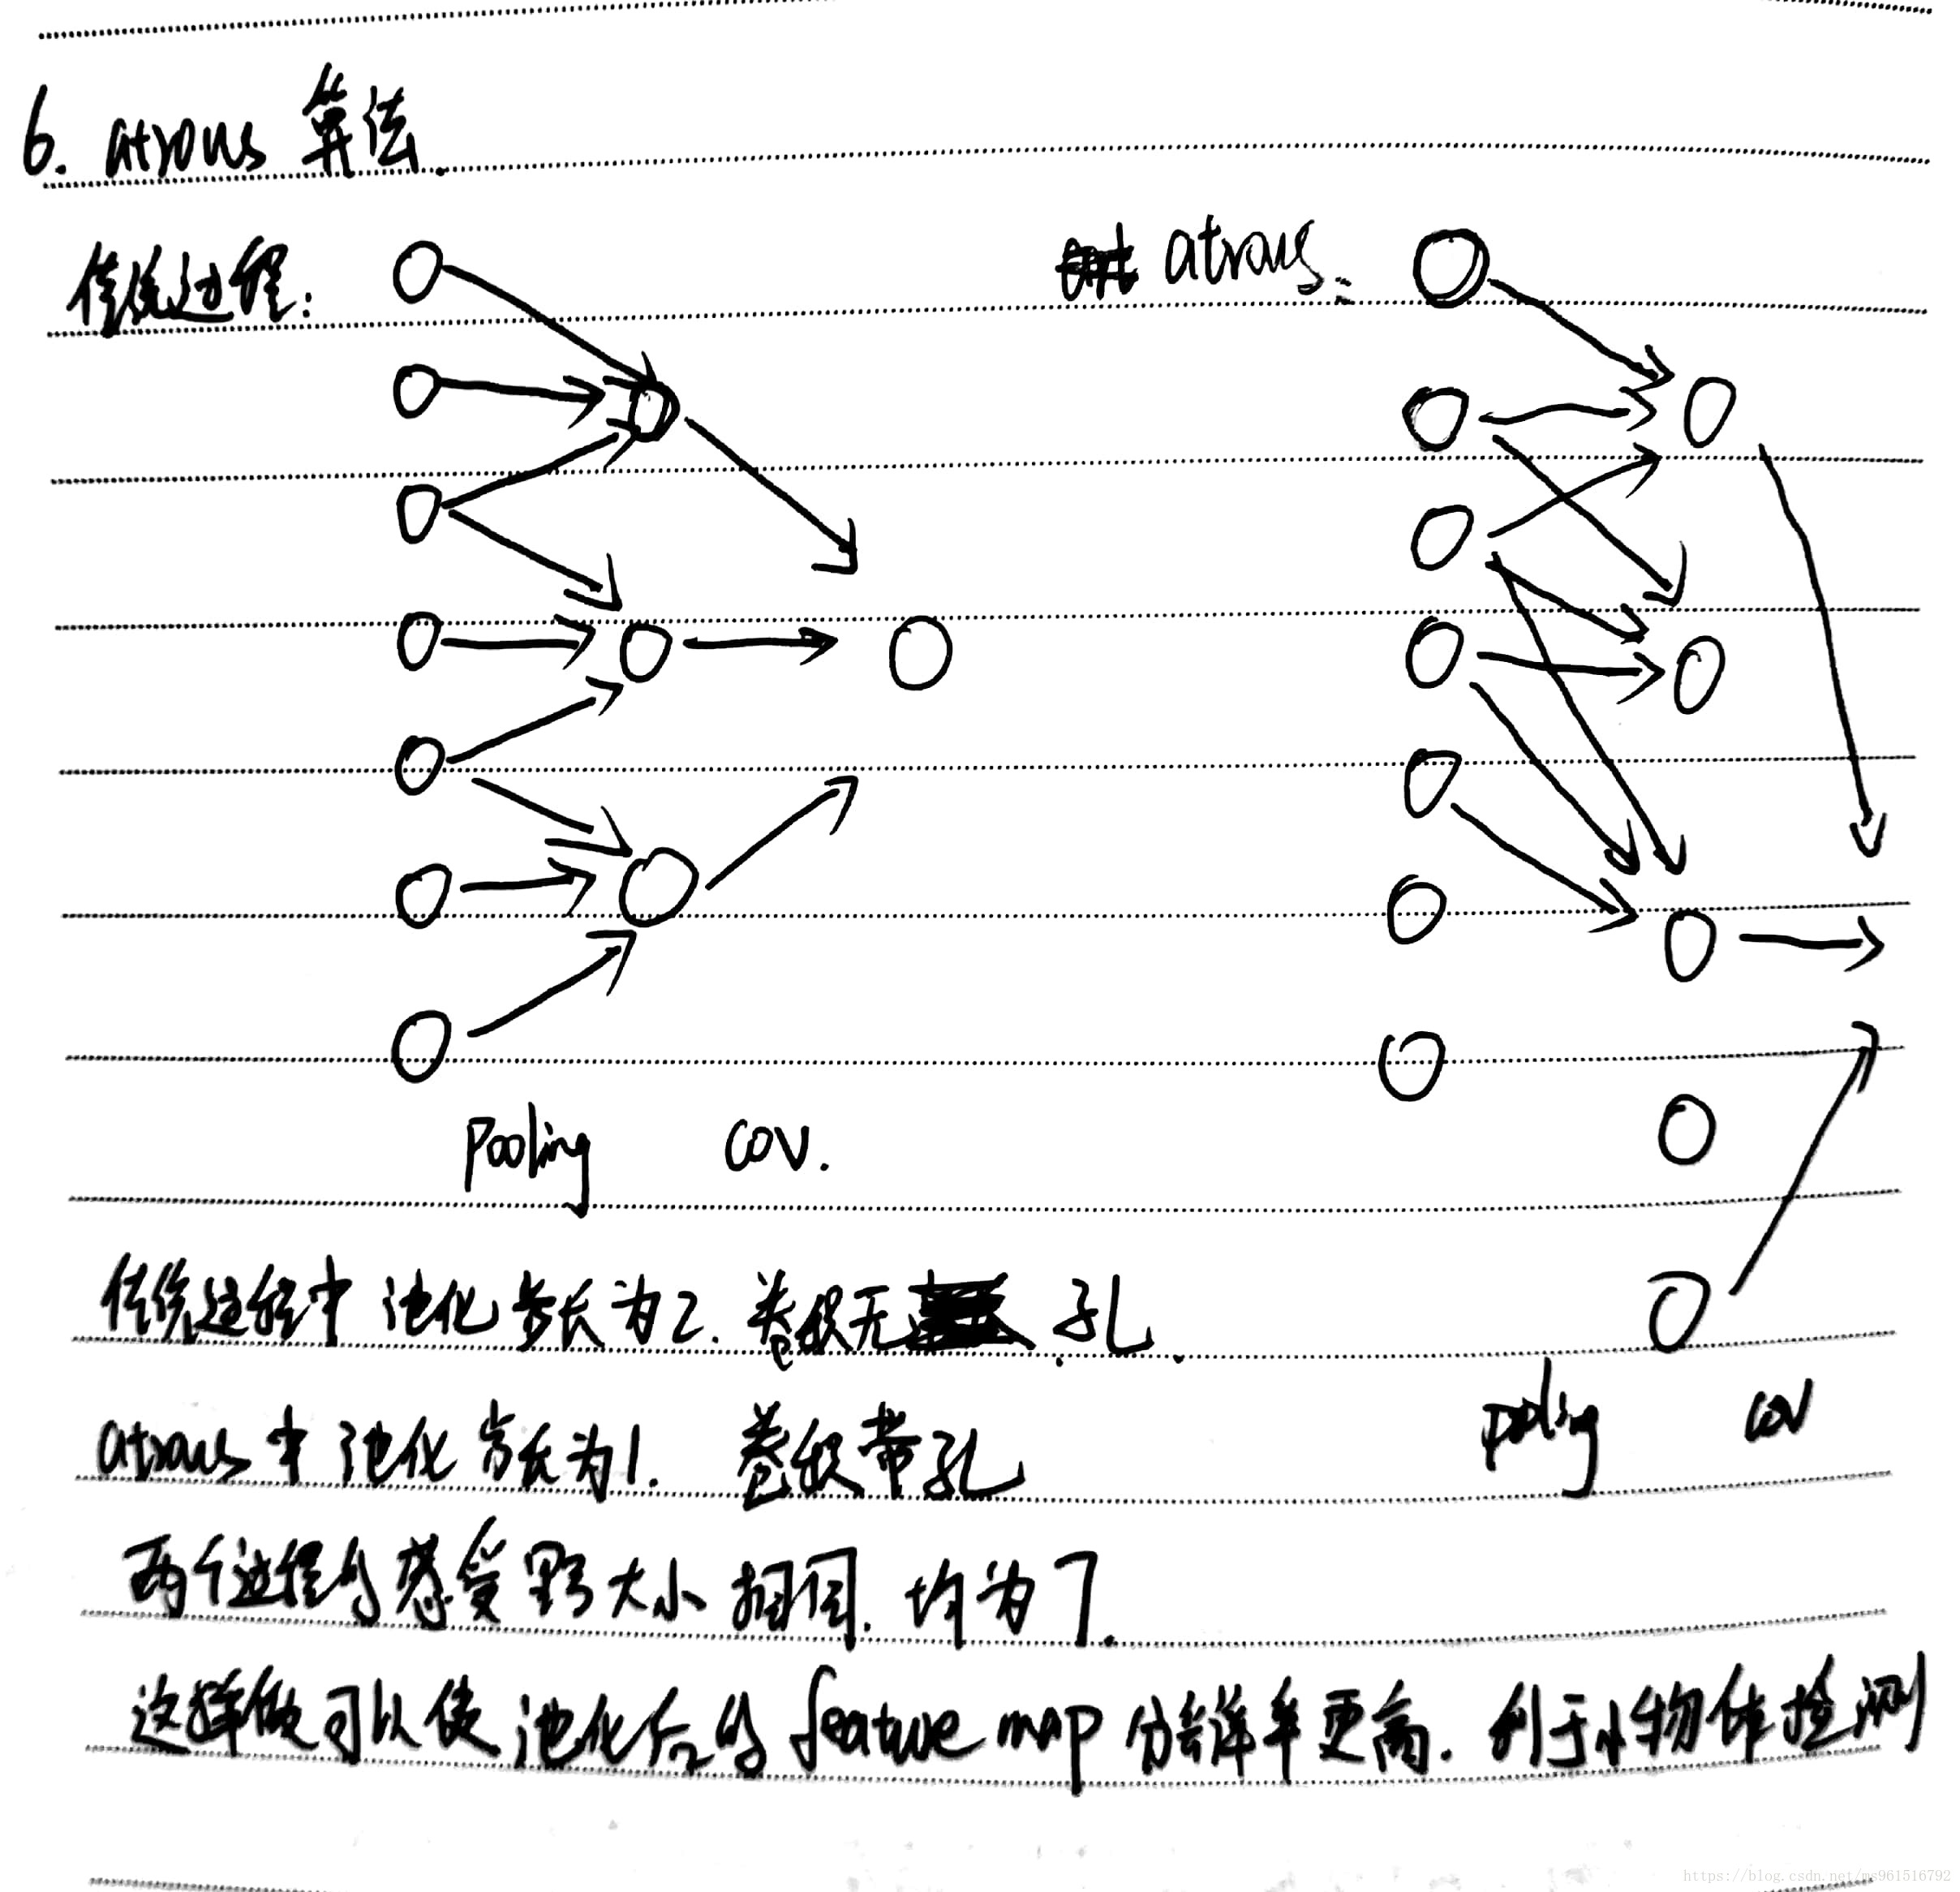 6. atrous 算法.
传统过程: atrous:
pooling cov.
传统过程中 池化步长为2. 卷积无 孔.
pooling cov
atrous中池化步长为1. 卷积带孔
两个过程的感受野大小相同. 均为7.
这样做可以使池化后的feature map 分辨率更高. 利于小物体检测
https://blog.csdn.net/ms961516792